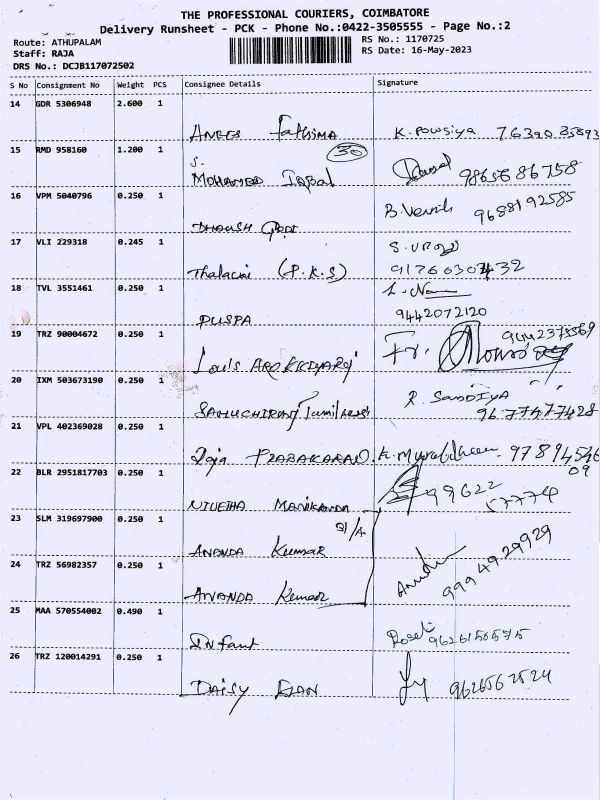 THE PROFESSIONAL COURIERS, COIMBATORE
Delivery Runsheet - PCK - Phone No.:0422-3505555 - Page No.:2
Route: ATHUPALAM RS No.: 1170725
Staff: RAJA RS Date: 16-May-2023
DRS No.: DCJB117072502
S No Consignment No Weight PCS Consignee Details Signature
14 GDR 5306948 2.600 1
Anees Fathima K. Powsiya
15 RMD 958160 1.200 1 30
S.
Mohamed Iqbal 9865686758
16 VPM 5040796 0.250 1
B. 9688192585
17 VLI 229318 0.245 1
Thalacri (P.K.S) 9176030732
18 TVL 3551461 0.250 1
PUSPA 9442072120
19 TRZ 90004672 0.250 1
Louis Fr.
20 IXM 503673190 0.250 1
R. Sandiya
9677477428
21 VPL 402369028 0.250 1
Raja PRABAKARAN. K.
22 BLR 2951817703 0.250 1
NIVETHA Manikanda 99622
57774
23 SLM 319697900 0.250 1
Ananda Kumar
24 TRZ 56982357 0.250 1
Ananda Kumar 9994929929
25 MAA 570554002 0.490 1
Infant 9626150595
26 TRZ 120014291 0.250 1
Daisy 9626562524